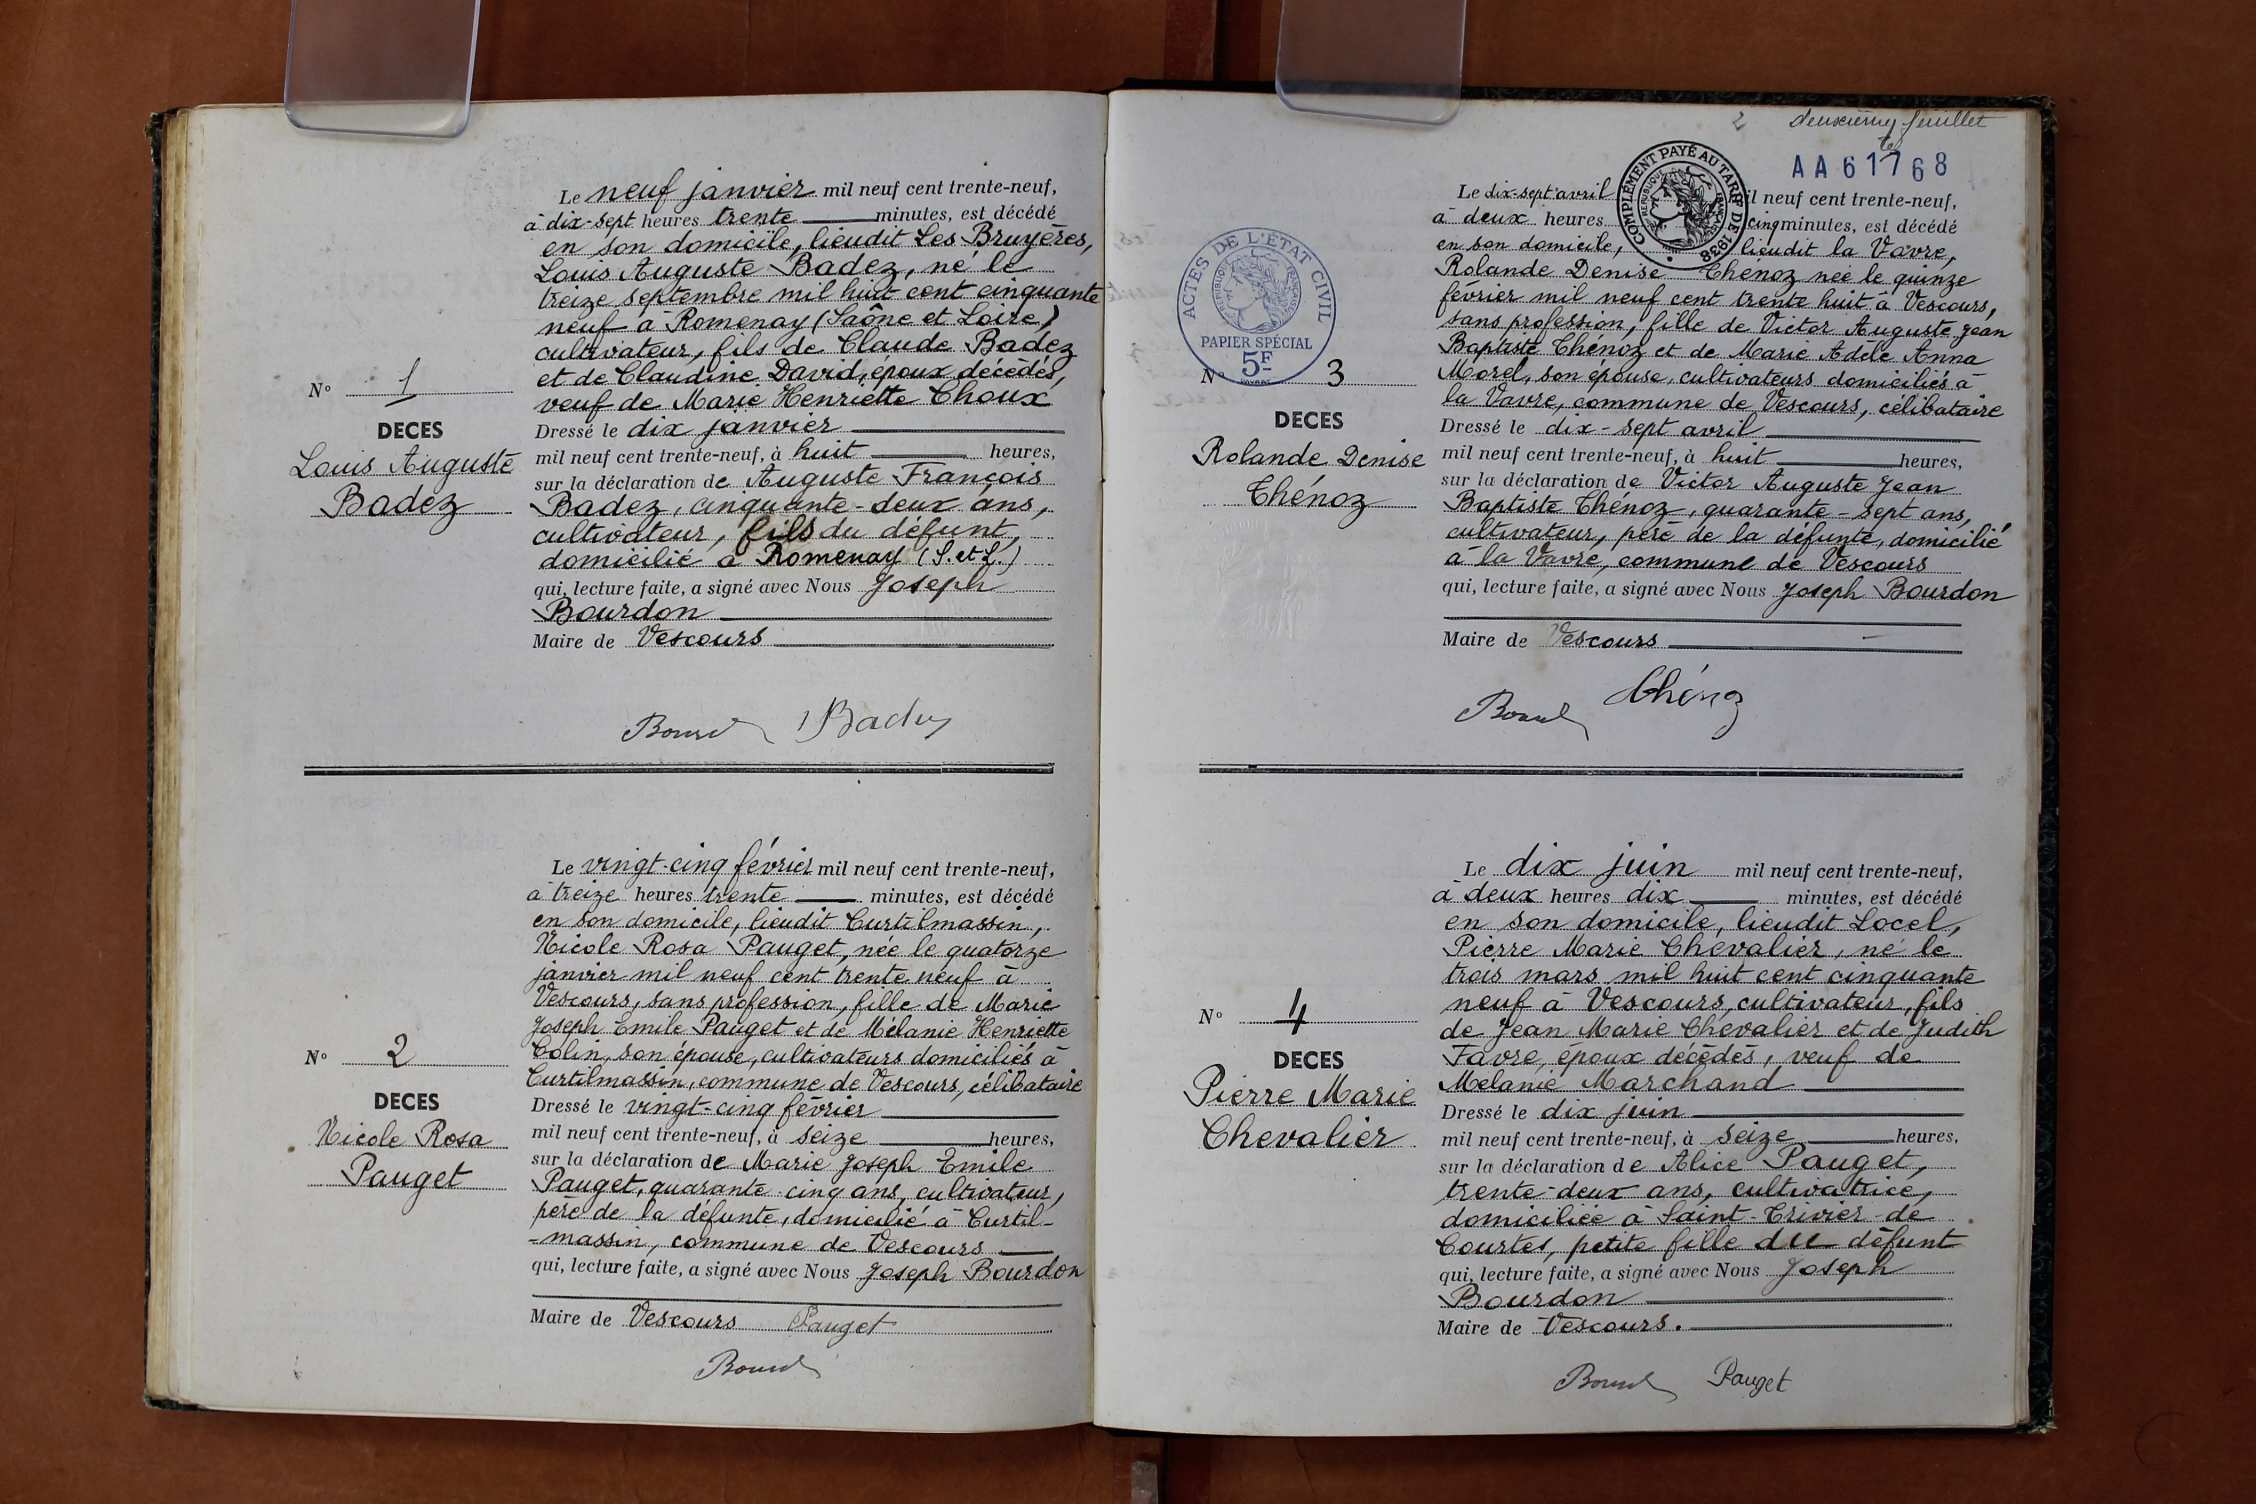 Le neuf janvier mil neuf cent trente-neuf,
à dix-sept heures trente minutes, est décédé
en son domicile, lieudit Les Bruyères,
Louis Auguste Badez, né le
treize septembre mil huit cent cinquante
neuf à Romenay (Saône et Loire)
cultivateur, fils de Claude Badez
et de Claudine David, époux décédés,
veuf de Marie Henriette Choux
Dressé le dix janvier
mil neuf cent trente-neuf, à huit heures,
sur la déclaration de Auguste François
Badez, cinquante-deux ans,
cultivateur, fils du défunt,
domicilié à Romenay (S. et L.)
qui, lecture faite, a signé avec Nous Joseph
Bourdon
Maire de Vescours
N° 1
DECES
Louis Auguste
Badez
Badez
Le vingt-cinq février mil neuf cent trente-neuf,
à treize heures trente minutes, est décédé
en son domicile, lieudit Curtilmassin,
Nicole Rosa Pauget, née le quatorze
janvier mil neuf cent trente neuf à
Vescours, sans profession, fille de Marie
Joseph Emile Pauget et de Mélanie Henriette
Colin, son épouse, cultivateurs domiciliés à
Curtilmassin, commune de Vescours, célibataire
Dressé le vingt-cinq février
mil neuf cent trente-neuf, à seize heures,
sur la déclaration de Marie Joseph Emile
Pauget, quarante-cinq ans, cultivateur,
père de la défunte, domicilié à Curtil-
-massin, commune de Vescours
qui, lecture faite, a signé avec Nous Joseph Bourdon
Maire de Vescours Pauget
N° 2
DECES
Nicole Rosa
Pauget
2 deuxième feuillet
AA61768
COMPLÉMENT PAYÉ AU TARIF DE 1938
REPUBLIQUE FRANÇAISE
ACTES DE L'ÉTAT CIVIL
REPUBLIQUE FRANÇAISE
PAPIER SPÉCIAL
5F
Le dix-sept avril il neuf cent trente-neuf,
à deux heures cinq minutes, est décédé
en son domicile, lieudit la Vavre,
Rolande Denise Thénoz née le quinze
février mil neuf cent trente huit à Vescours,
sans profession, fille de Victor Auguste Jean
Baptiste Thénoz et de Marie Adèle Anna
Morel, son épouse, cultivateurs domiciliés à
la Vavre, commune de Vescours, célibataire
Dressé le dix-sept avril
mil neuf cent trente-neuf, à huit heures,
sur la déclaration de Victor Auguste Jean
Baptiste Thénoz, quarante-sept ans,
cultivateur, père de la défunte, domicilié
à la Vavre, commune de Vescours
qui, lecture faite, a signé avec Nous Joseph Bourdon
Maire de Vescours
N° 3
DECES
Rolande Denise
Thénoz
Thénoz
Le dix juin mil neuf cent trente-neuf,
à deux heures dix minutes, est décédé
en son domicile, lieudit Locel,
Pierre Marie Chevalier, né le
trois mars mil huit cent cinquante
neuf à Vescours, cultivateur, fils
de Jean Marie Chevalier et de Judith
Favre, époux décédés, veuf de
Mélanie Marchand
Dressé le dix juin
mil neuf cent trente-neuf, à seize heures,
sur la déclaration de Alice Pauget,
trente-deux ans, cultivatrice,
domiciliée à Saint-Trivier-de
Courtes, petite fille du défunt
qui, lecture faite, a signé avec Nous Joseph
Bourdon
Maire de Vescours.
N° 4
DECES
Pierre Marie
Chevalier
Pauget